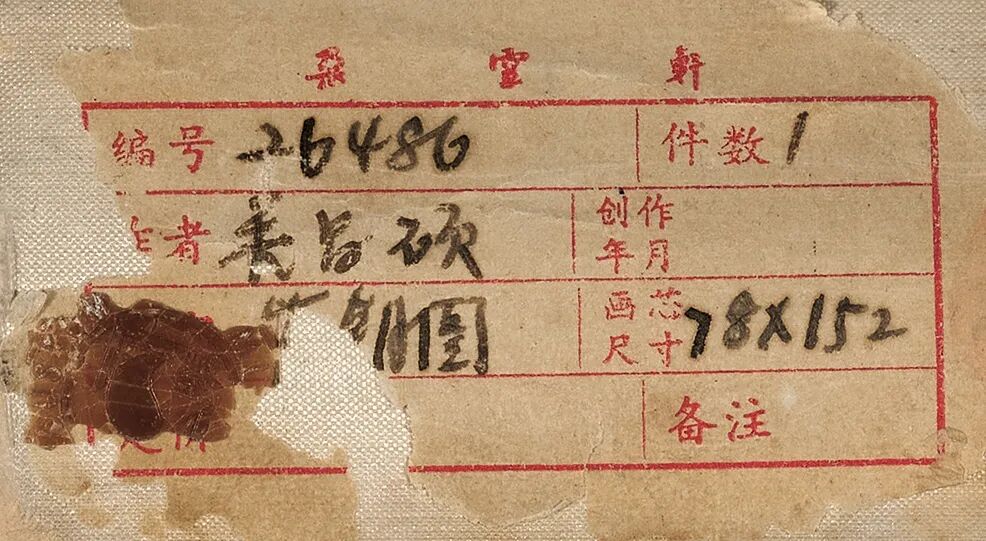 朶雲軒
编号 26486 件数 1
作者 吴昌硕 创作年月
图 画芯尺寸 78X152
备注